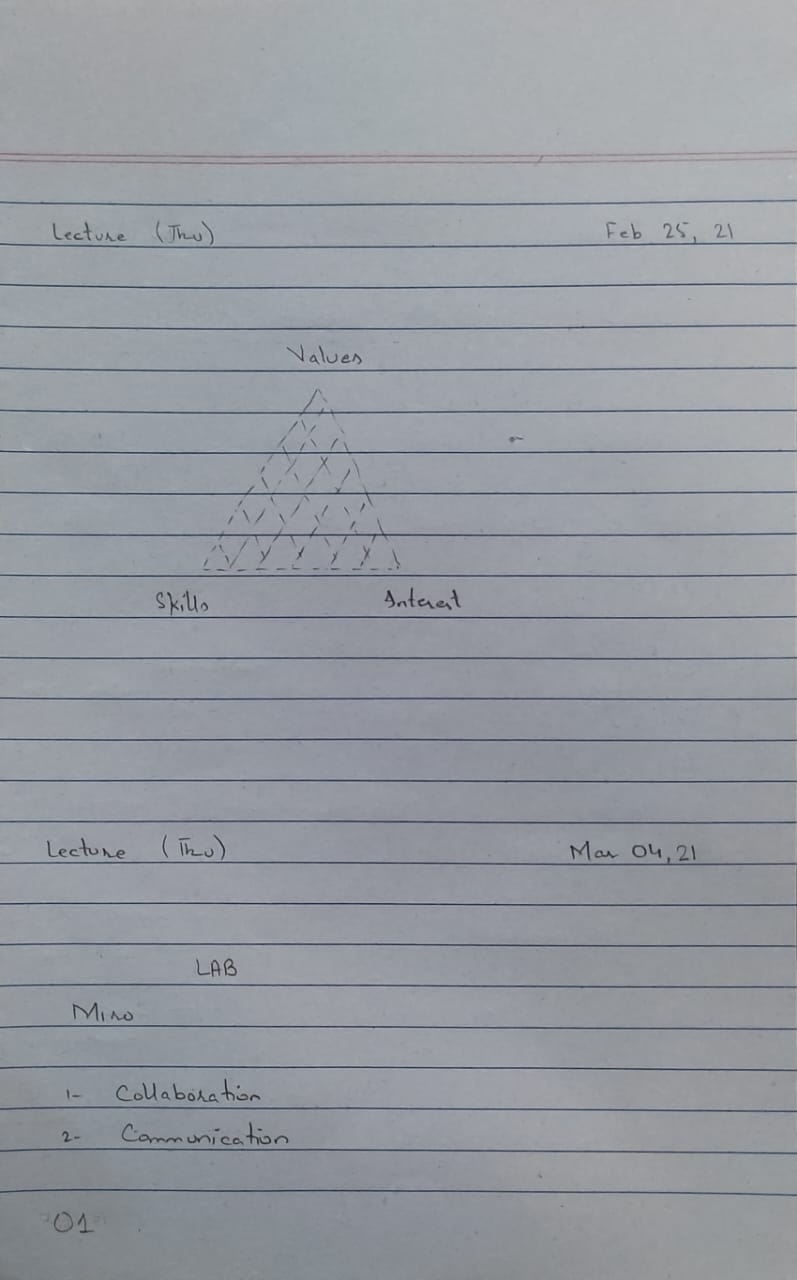 Lecture (Thu) Feb 25, 21
Values
Skills Interest
Lecture (Thu) Mar 04, 21
LAB
Miro
1- Collaboration
2- Communication
01